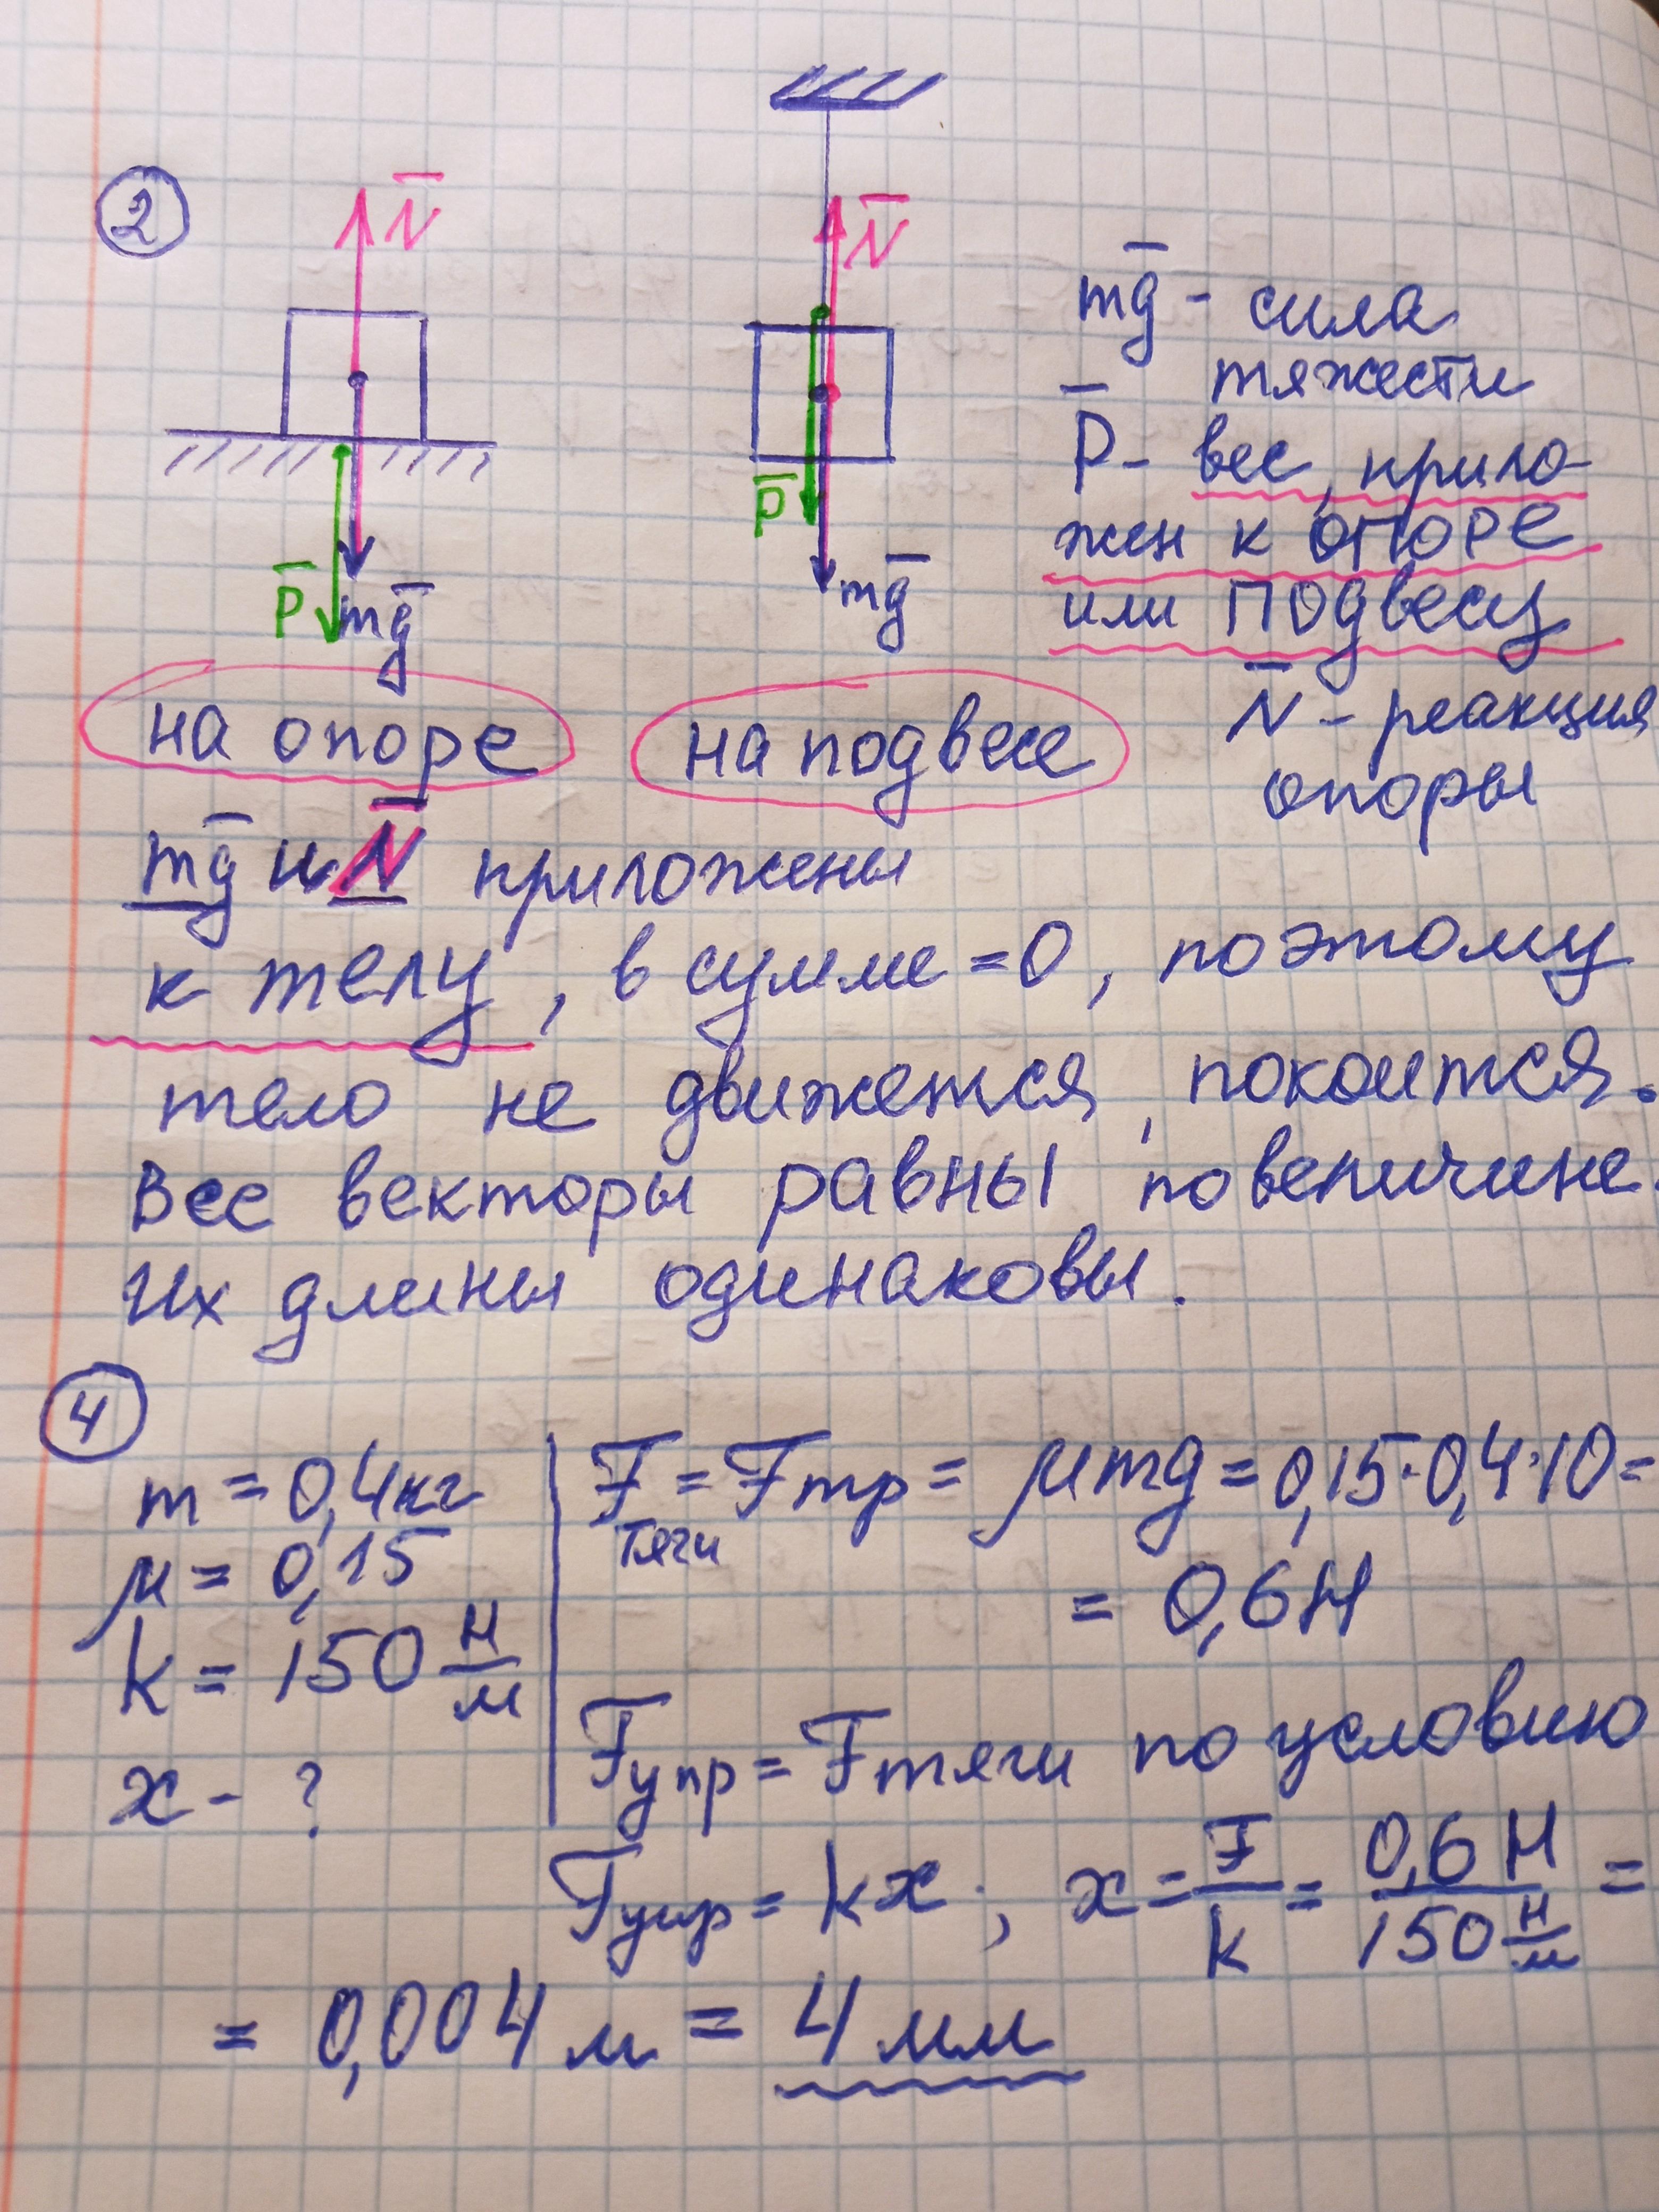 2
N̅
N̅
P̅
mg̅
P̅
mg̅
mg̅ - сила
тяжести
P̅ - вес, прило-
жен к опоре
или подвесу
N̅ - реакция
опоры
на опоре
на подвесе
mg̅ и N̅ приложены
к телу, в сумме = 0, поэтому
тело не движется, покоится.
Все векторы равны по величине.
Их длины одинаковы.
4
m = 0,4 кг
μ = 0,15
k = 150 Н/м
x - ?
F тяги = Fтр = μmg = 0,15·0,4·10 =
= 0,6 Н
Fупр = Fтяги по условию
Fупр = kx; x = F/k = 0,6 Н / 150 Н/м =
= 0,004 м = 4 мм